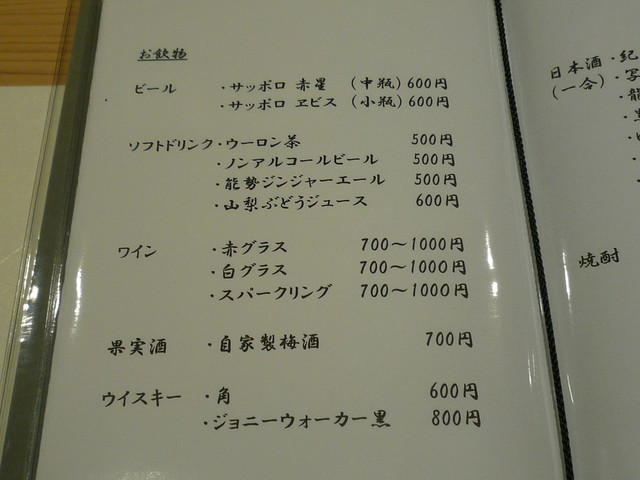 お飲物
ビール ・サッポロ 赤星 (中瓶) 600円
・サッポロ ヱビス (小瓶) 600円
ソフトドリンク・ウーロン茶 500円
・ノンアルコールビール 500円
・能勢ジンジャーエール 500円
・山梨ぶどうジュース 600円
ワイン ・赤グラス 700〜1000円
・白グラス 700〜1000円
・スパークリング 700〜1000円
果実酒 ・自家製梅酒 700円
ウイスキー ・角 600円
・ジョニーウォーカー黒 800円
日本酒・紀
(一合)・写
・龍
焼酎